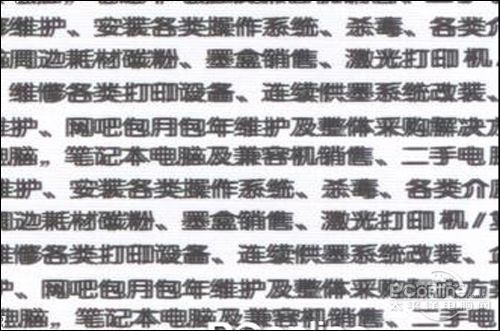 维护、安装各类操作系统、杀毒、各类介
周边耗材碳粉、墨盒销售、激光打印机/
维修各类打印设备、连续供墨系统改装、
维护、网吧包月包年维护及整体采购解决方
电脑,笔记本电脑及兼容机销售、二手电
维护、安装各类操作系统、杀毒、各类介
周边耗材碳粉、墨盒销售、激光打印机/
维修各类打印设备、连续供墨系统改装、
维护、网吧包月包年维护及整体采购解决方
电脑,笔记本电脑及兼容机销售、二手电
PConline
太平洋电脑网